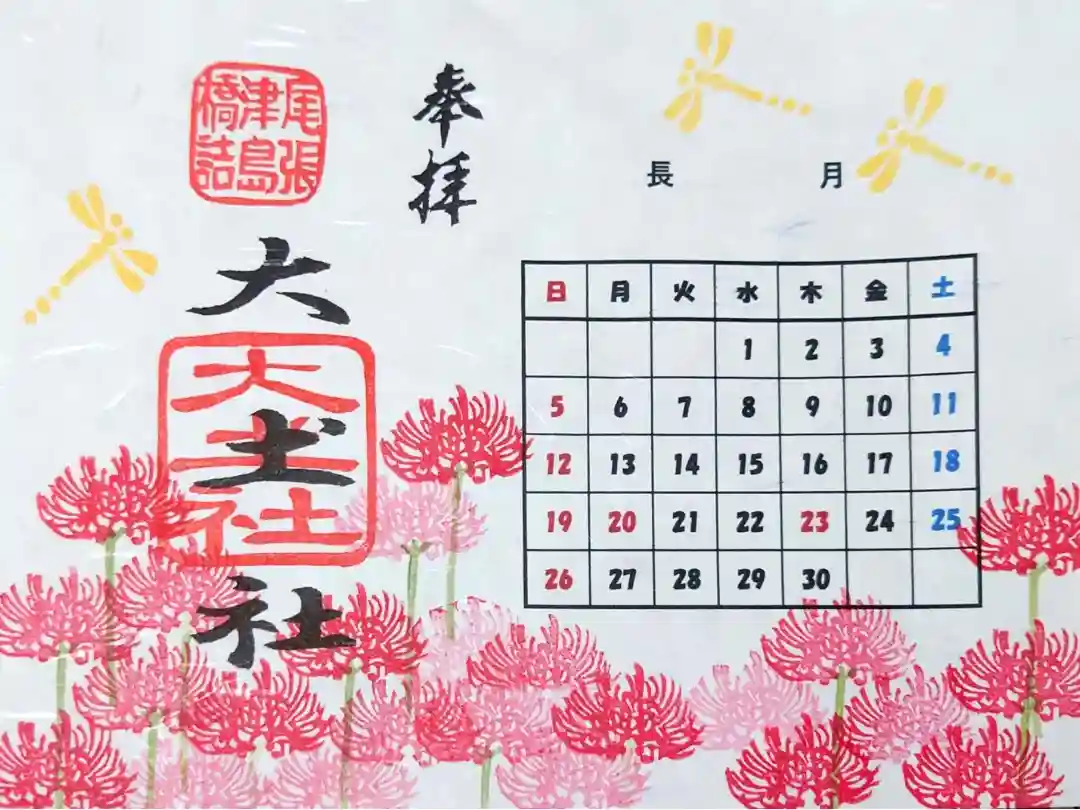 奉拝
尾張
津島
橋詰
大土社
大土社
長 月
日 月 火 水 木 金 土
1 2 3 4
5 6 7 8 9 10 11
12 13 14 15 16 17 18
19 20 21 22 23 24 25
26 27 28 29 30